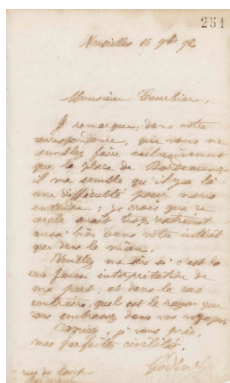 251
Monsieur Courbier,
Je remarque, dans votre
correspondance, que vous ne
semblez faire exclusivement
que la place de Bordeaux;
il me semble qu'il y a là
une difficulté pour nous
entendre; je crois que ce
cercle serait trop restreint
aussi bien dans votre intérêt
que dans le mien.
Veuillez me dire si c'est là
une fausse interprétation de
ma part, et dans le cas
contraire, quel est le rayon que
vous embrassez dans vos voyages
Agréez, je vous prie,
mes parfaites civilités.
Godin